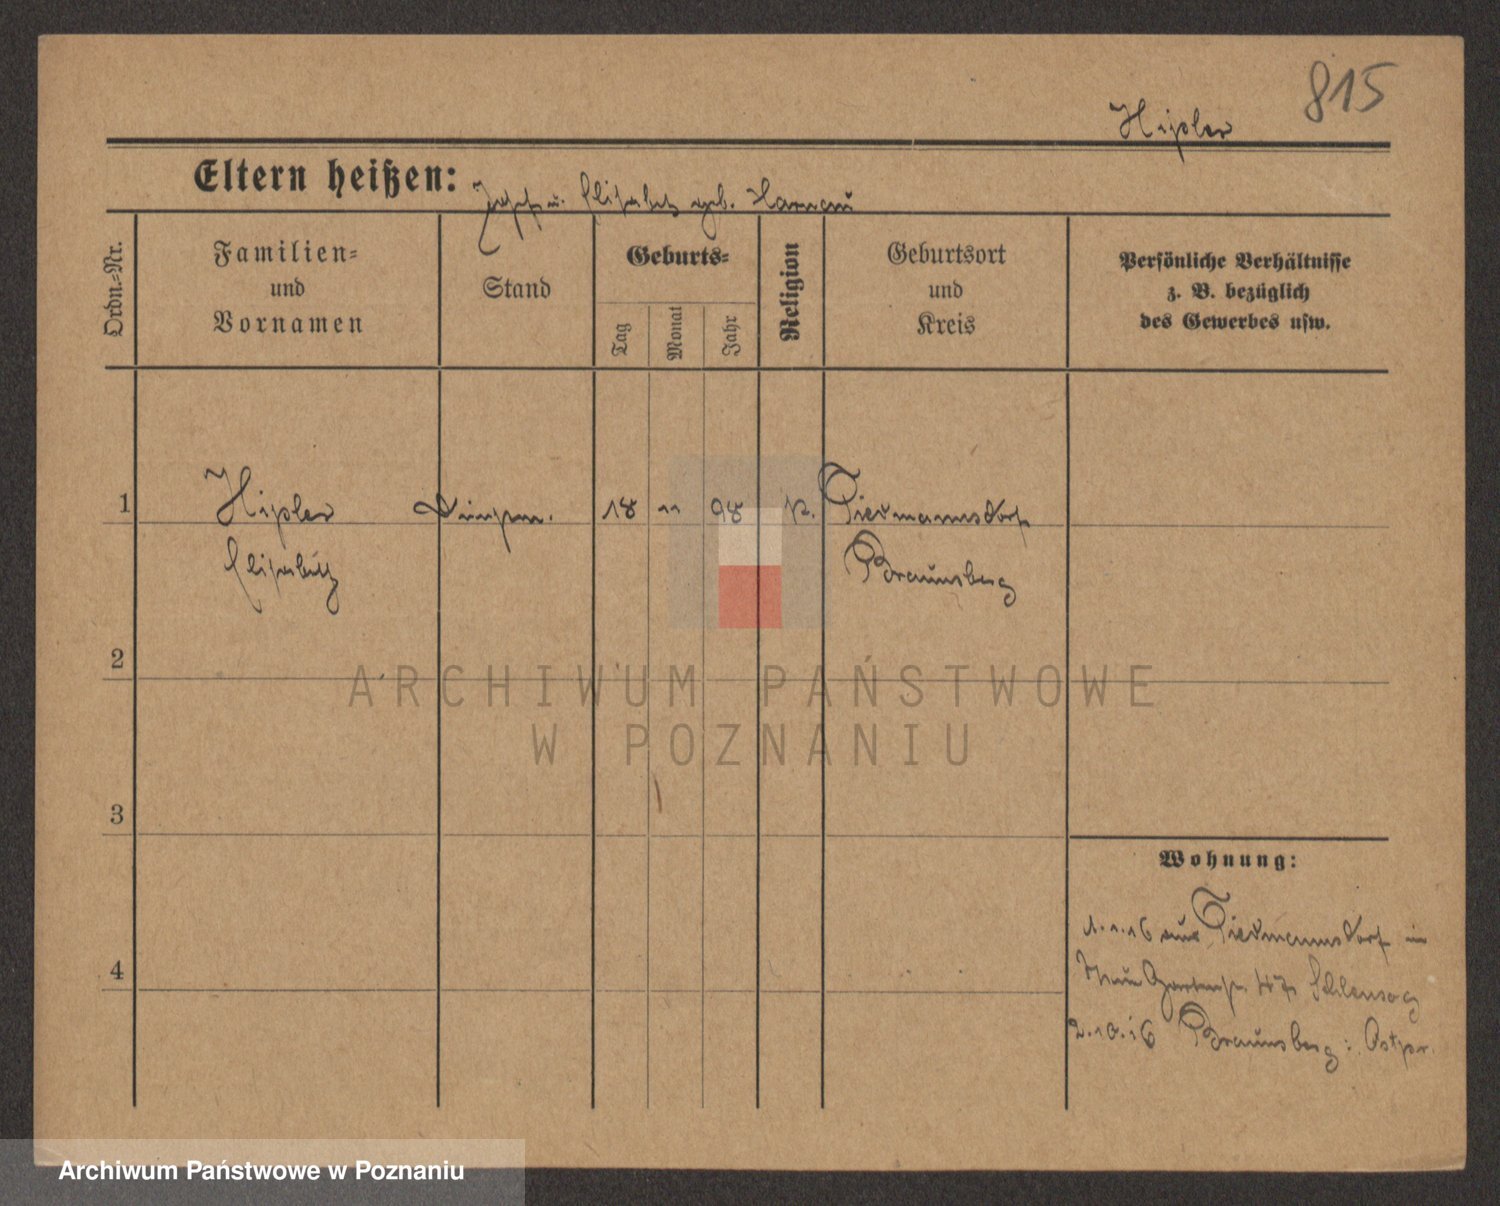 815
Hipler
Eltern heißen: Josef u. Elisabeth geb. Harnau
Ordn.=Nr.
Familien=
und
Vornamen
Stand
Geburts=
Tag
Monat
Jahr
Religion
Geburtsort
und
Kreis
Persönliche Verhältnisse
z. B. bezüglich
des Gewerbes usw.
1 Hipler 18 11 98 k. Tiedmannsdorf
Elisabeth Braunsberg
2
ARCHIWUM PAŃSTWOWE
W POZNANIU
3
Wohnung:
1.1.16 aus Tiedmannsdorf in
Neue Gartenstr. 47
4
2.10.16 Braunsberg: Ostpr.
Archiwum Państwowe w Poznaniu